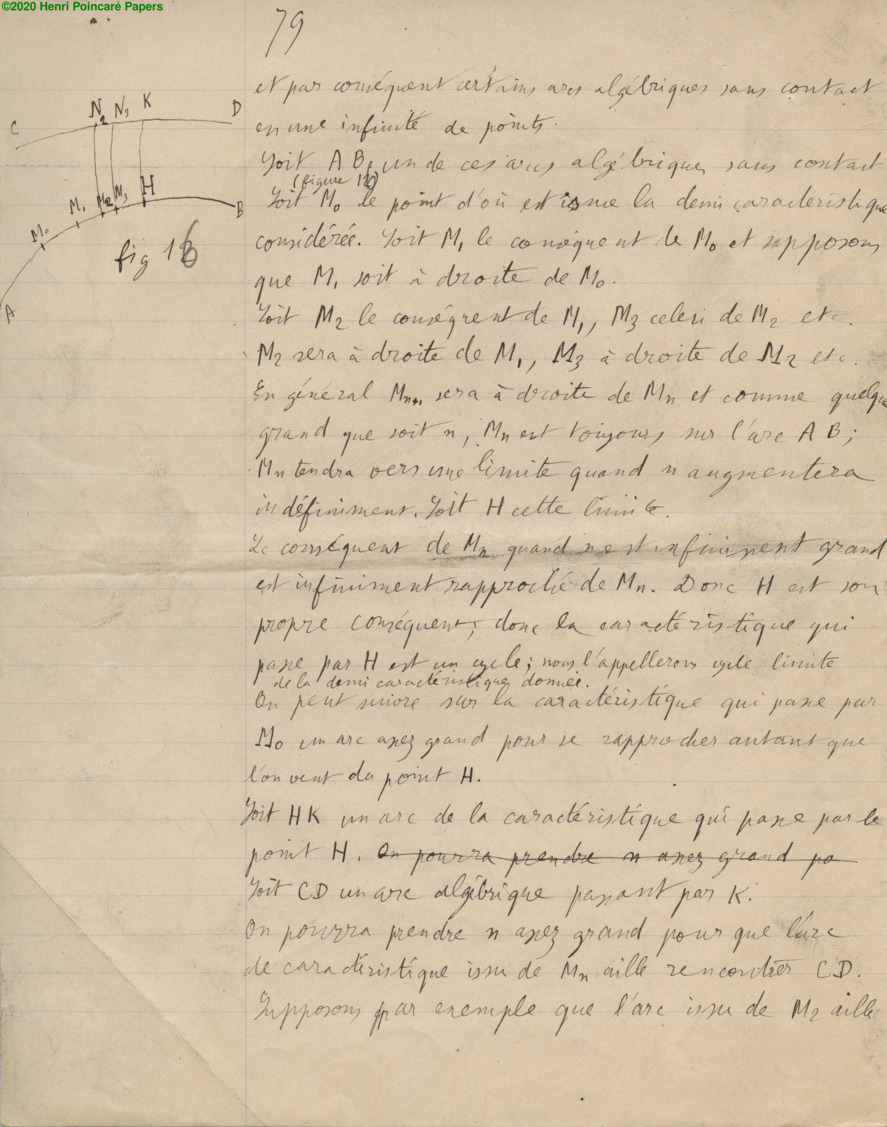 ©2020 Henri Poincaré Papers
79
C N2 N3 K D
M0 M1 M2 M3 H B
A
fig 16
et par conséquent certains arcs algébriques sans contact
en une infinité de points.
Soit AB, un de ces arcs algébriques sans contact
(figure 16)
Soit M0 le point d'où est issue la demi caractéristique
considérée. Soit M1 le conséquent de M0 et supposons
que M1 soit à droite de M0.
Soit M2 le conséquent de M1, M3 celui de M2 etc.
M2 sera à droite de M1, M3 à droite de M2 etc.
En général Mn+1 sera à droite de Mn et comme quelque
grand que soit n, Mn est toujours sur l'arc AB;
Mn tendra vers une limite quand n augmentera
indéfiniment. Soit H cette limite.
Le conséquent de Mn quand n est infiniment grand
est infiniment rapproché de Mn. Donc H est son
propre conséquent; donc la caractéristique qui
passe par H est un cycle; nous l'appellerons cycle limite
de la demi caractéristique donnée.
On peut suivre sur la caractéristique qui passe par
M0 un arc assez grand pour se rapprocher autant que
l'on veut du point H.
Soit HK un arc de la caractéristique qui passe par le
point H. On pourra prendre n assez grand po
Soit CD un arc algébrique passant par K.
On pourra prendre n assez grand pour que l'arc
de caractéristique issu de Mn aille rencontrer CD.
Supposons par exemple que l'arc issu de M2 aille